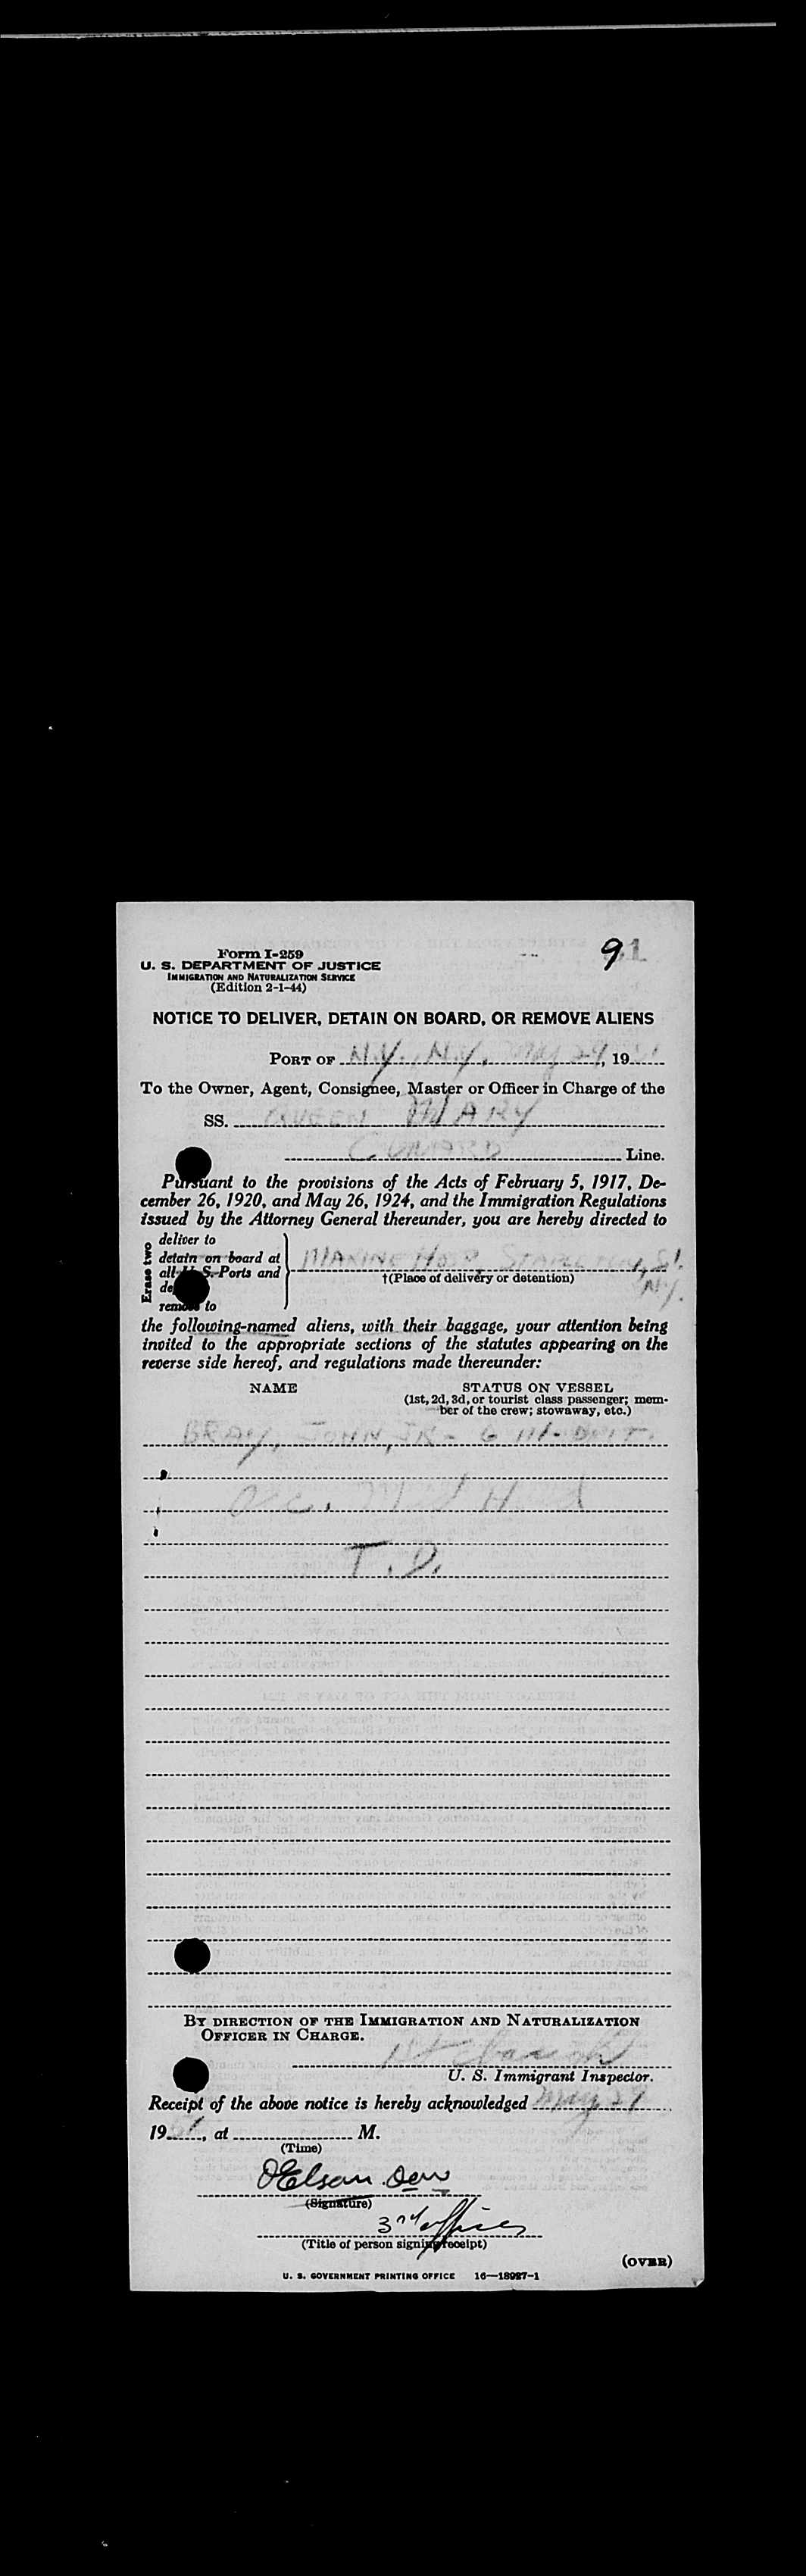 Form I-259
U. S. DEPARTMENT OF JUSTICE
IMMIGRATION AND NATURALIZATION SERVICE
(Edition 2-1-44)
91
NOTICE TO DELIVER, DETAIN ON BOARD, OR REMOVE ALIENS
PORT OF N.Y., N.Y. May 29, 1951
To the Owner, Agent, Consignee, Master or Officer in Charge of the
SS. QUEEN MARY
CUNARD Line.
Pursuant to the provisions of the Acts of February 5, 1917, De-
cember 26, 1920, and May 26, 1924, and the Immigration Regulations
issued by the Attorney General thereunder, you are hereby directed to
Erase two
deliver to
detain on board at
all U. S. Ports and
remove to
MARINE HOSP. S.I.
N.Y.
†(Place of delivery or detention)
the following-named aliens, with their baggage, your attention being
invited to the appropriate sections of the statutes appearing on the
reverse side hereof, and regulations made thereunder:
NAME
STATUS ON VESSEL
(1st, 2d, 3d, or tourist class passenger; mem-
ber of the crew; stowaway, etc.)
BRAY, JOHN, JR - 6 111 - BRIT.
T. D.
BY DIRECTION OF THE IMMIGRATION AND NATURALIZATION
OFFICER IN CHARGE.
U. S. Immigrant Inspector.
Receipt of the above notice is hereby acknowledged May 29
1951, at M.
(Time)
(Signature)
3rd officer
(Title of person signing receipt)
(OVER)
U. S. GOVERNMENT PRINTING OFFICE 16—18927-1